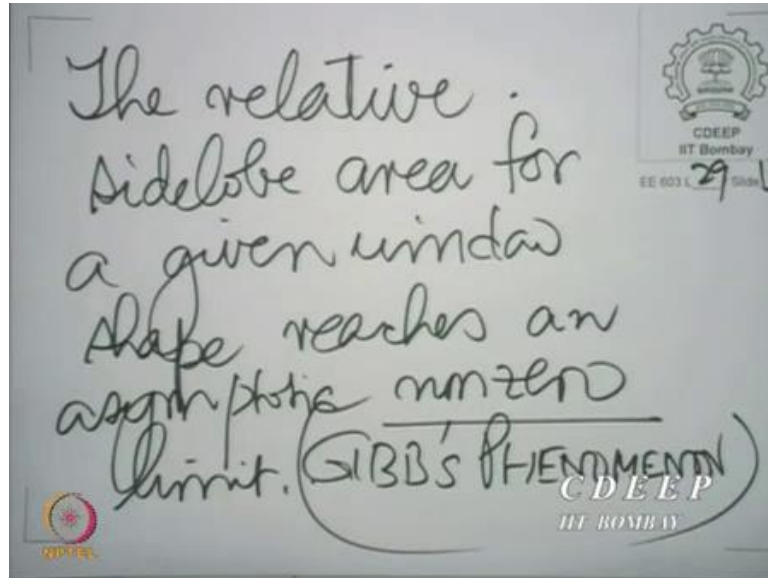 The relative.
sidelobe area for
a given window
shape reaches an
asymptotic nonzero
limit. (GIBB's PHENOMENON)
CDEEP
IIT Bombay
EE 603 L 29 Slide
CDEEP
IIT BOMBAY
NPTEL